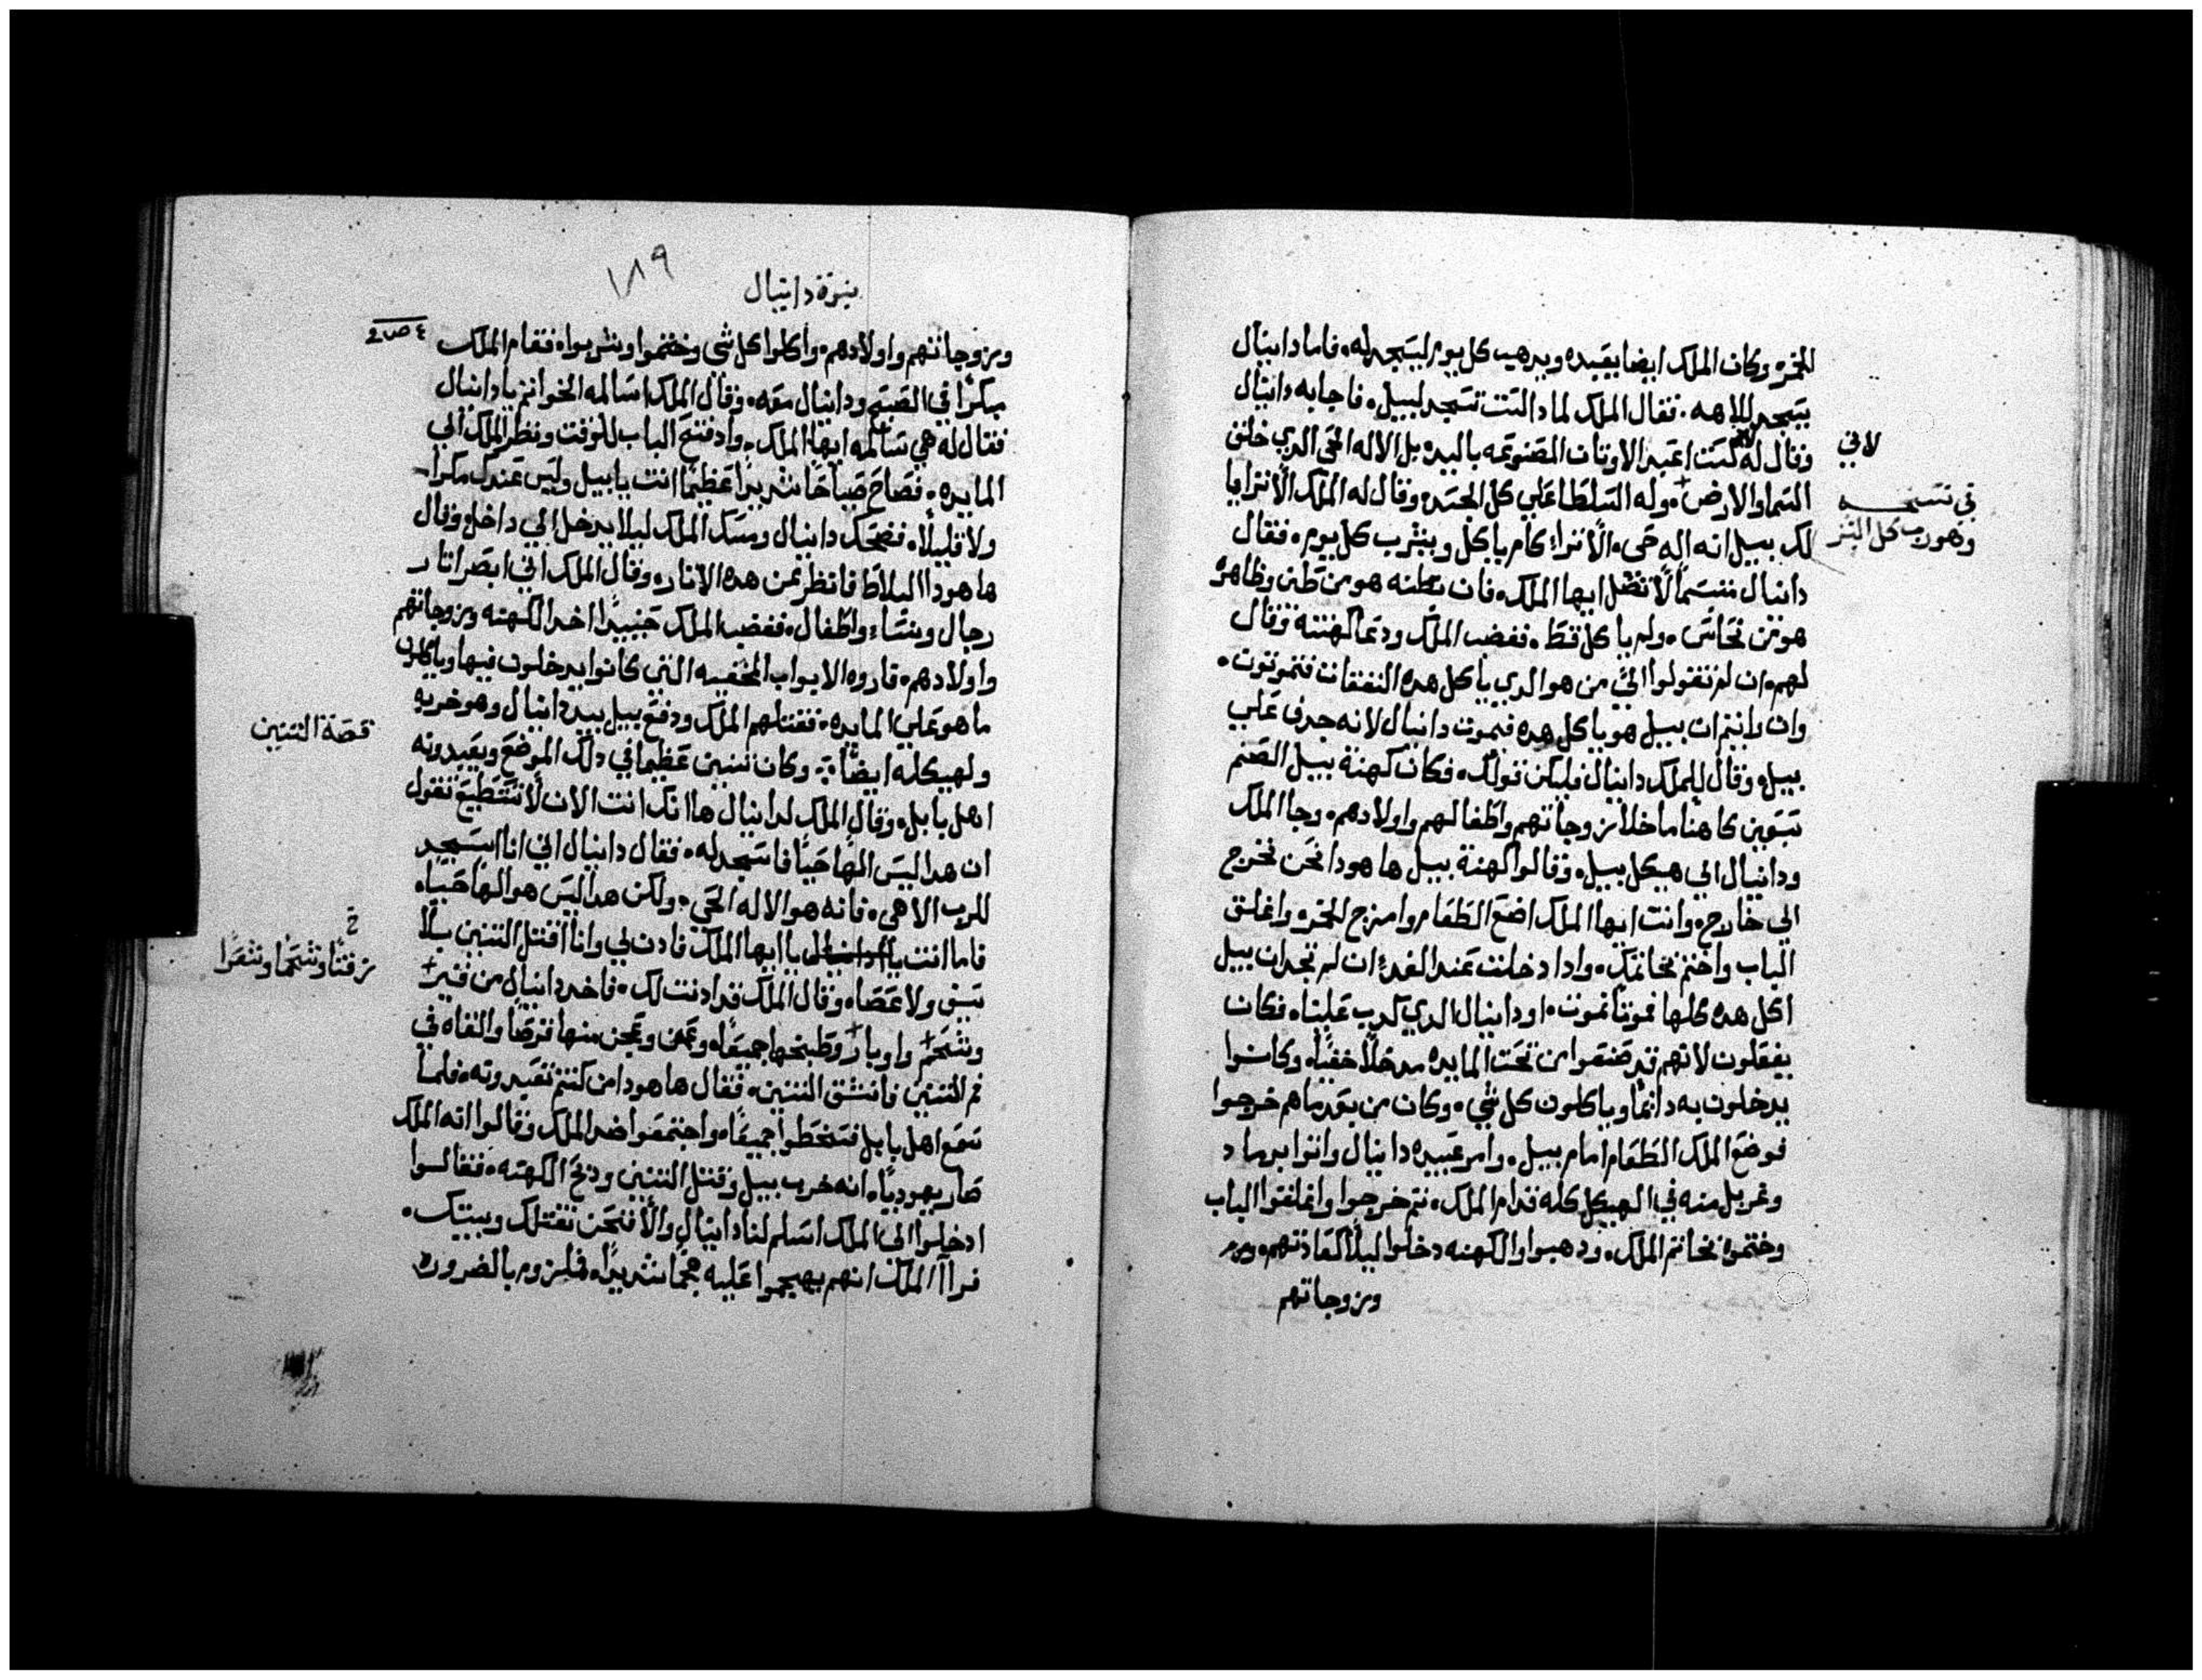 للخمر وكان الملك ايضا يعبده ويدهب كل يوم ليسجد له. فاما دانيال
يسجد للاهه. فقال الملك لمادا لست تسجد لبيل. فاجابه دانيال
وقال له لست اعبد الاوتان المصنوعه باليد. بل الاله الحي الدي خلق
لاني
السما والارض. وله السلطا علي كل الجسد. وقال له الملك ألا تترايا
في نسخه
وهو رب كل البشر
لك بيل انه اله حي. ألا تترا كام ياكل ويشرب كل يوم. فقال
دانيال متبسما لا تضل ايها الملك. فان بطنه هو من طين وظاهره
هو من نحاس. ولم ياكل قط. فغضب الملك ودعا كهنته وقال
لهم. ان لم تقولوا اليَّ من هو الدي ياكل هده النفقات فتموتون.
وان رايتم ان بيل هو ياكل هده فيموت دانيال لانه جدف علي
بيل. وقال للملك دانيال فليكن قولك. فكان كهنة بيل الصنم
سبعين كاهنا ما خلا زوجاتهم واطفالهم واولادهم. وجا الملك
ودانيال الي هيكل بيل. وقالوا كهنة بيل ها هودا نحن نخرج
الى خارج. وانت ايها الملك اضع الطعام وامزج الخمر. واغلق
الباب واختم بخاتمك. وادا دخلت عند الغد ان لم تجد ان بيل
اكل هده كلها فموتا نموت. او دانيال الدي كدب علينا. فكان
يفعلون لانهم قد صنعوا من تحت المايده مدخلا خفيا. وكانوا
يدخلون به دائما وياكلون كل شي. وكان من بعد ما هم خرجوا
فوضع الملك الطعام امام بيل. وامر عبيده دانيال واتوا برماد
وغربل منه في الهيكل كله قدام الملك. تم خرجوا واغلقوا الباب
وختموه بخاتم الملك. ودهبوا والكهنه دخلوا ليلا كعادتهم.
وزوجاتهم
نبوة دانيال
١٨٩
وزوجاتهم واولادهم. واكلوا كل شي وختموا وشربوا. فقام الملك
مبكرا في الصبح ودانيال معه. وقال الملك اسالمه الخواتم يا دانيال
فقال له هي سالمه ايها الملك. واد فتح الباب للوقت ونظر الملك الي
المايده. فصاح صياحا شديدا عظيما انت يا بيل وليس عندك مكرا
ولا قليلا. فضحك دانيال ومسك الملك ليلا يدخل الي داخل وقال
ها هودا البلاط فانظر لمن هده الاتار. وقال الملك اني ابصر اتار
رجال ونساء واطفال. فغضب الملك حينيدا اخد الكهنه وزوجاتهم
واولادهم. فاروه الابواب المخفيه التي كانوا يدخلون فيها وياكلون
ما هو علي المايده. فقتلهم الملك ودفع بيل بيد دانيال وهو خربه
قصة التنين
ولهيكله ايضا. وكان تنين عظيما في دلك الموضع ويعبدونه
اهل بابل. وقال الملك لدانيال ها انك انت الان لا تستطيع تقول
ان هدا ليس الها حيا فاسجد له. فقال دانيال اني انا اسجد
للرب الاهي. فانه هو الاله الحي. ولكن هدا ليس هو الها حيا.
فاما انت يا ايها الملك فادن لي وانا اقتل التنين بلا
خ
زفتا وشحما وشعرا
سيف ولا عصا. وقال الملك قد ادنت لك. فاخد دانيال من قير
وشحم واوبار وطبخها جميعا. وعجن منها قرصا والقاه في
فم التنين فانشق التنين. فقال ها هودا من كنتم تعبدونه. فلما
سمع اهل بابل فسخطوا جميعا. واجتمعوا ضد الملك وقالوا انه الملك
صار يهوديا. انه خرب بيل وقتل التنين ودبح الكهنه. فقالوا
ادخلوا الى الملك اسلم لنا دانيال والا فنحن نقتلك وبيتك.
فرا الملك انهم يهيجوا عليه هجما شديدا. فلزوم بالضروره